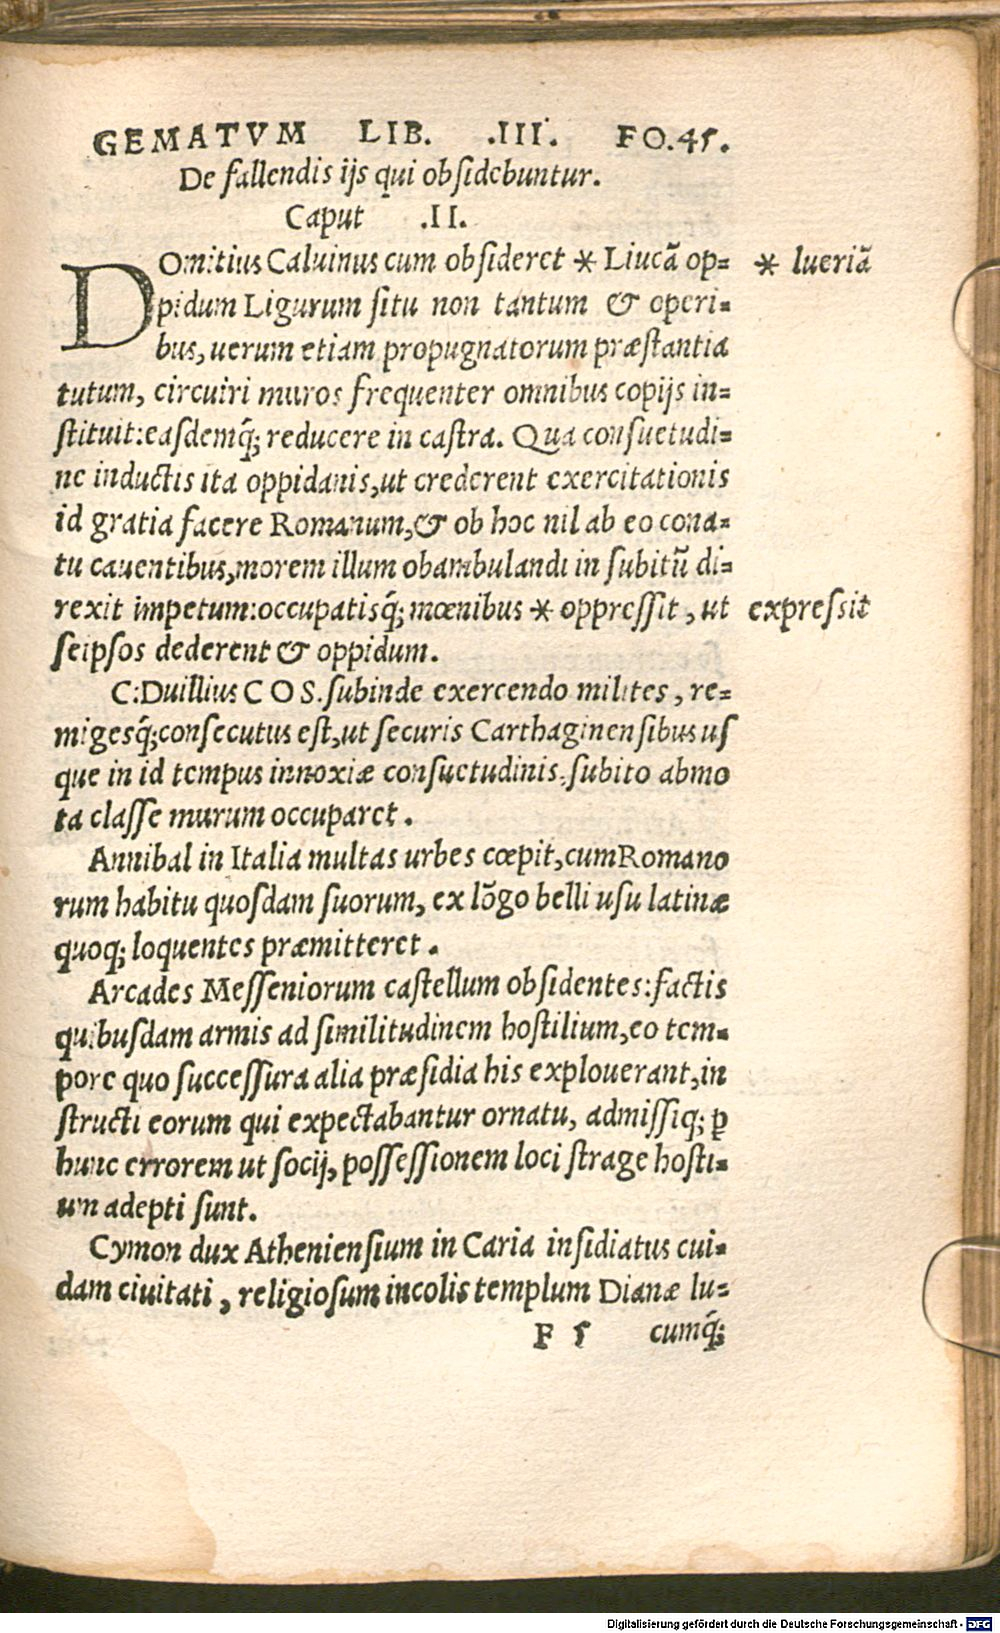 GEMATVM LIB. .III. FO.45.
De fallendis ijs qui obsidebuntur.
Caput .II.
DOmitius Caluinus cum obsideret * Liucã op= * lueriã
pidum Ligurum situ non tantum & operi=
bus, uerum etiam propugnatorum præstantia
tutum, circuiri muros frequenter omnibus copijs in=
stituit:easdemq̃; reducere in castra. Qua consuetudi=
ne inductis ita oppidanis,ut crederent exercitationis
id gratia facere Romanum,& ob hoc nil ab eo cona=
tu cauentibus,morem illum obambulandi in subitũ di=
rexit impetum:occupatisq̃; mœnibus * oppressit, ut expressit
seipsos dederent & oppidum.
C:Duillius C O S. subinde exercendo milites, re=
migesq̃;consecutus est,ut securis Carthaginensibus us
que in id tempus innoxiæ consuetudinis, subito abmo
ta classe murum occuparet.
Annibal in Italia multas urbes cœpit,cum Romano
rum habitu quosdam suorum, ex lõgo belli usu latinæ
quoq; loquentes præmitteret.
Arcades Messeniorum castellum obsidentes:factis
quibusdam armis ad similitudinem hostilium,eo tem=
pore quo successura alia præsidia his explouerant,in
structi eorum qui expectabantur ornatu, admissiq; ꝑ
hunc errorem ut socij, possessionem loci strage hosti=
um adepti sunt.
Cymon dux Atheniensium in Caria insidiatus cui=
dam ciuitati, religiosum incolis templum Dianæ lu=
F 5 cumq̃;
Digitalisierung gefördert durch die Deutsche Forschungsgemeinschaft - DFG